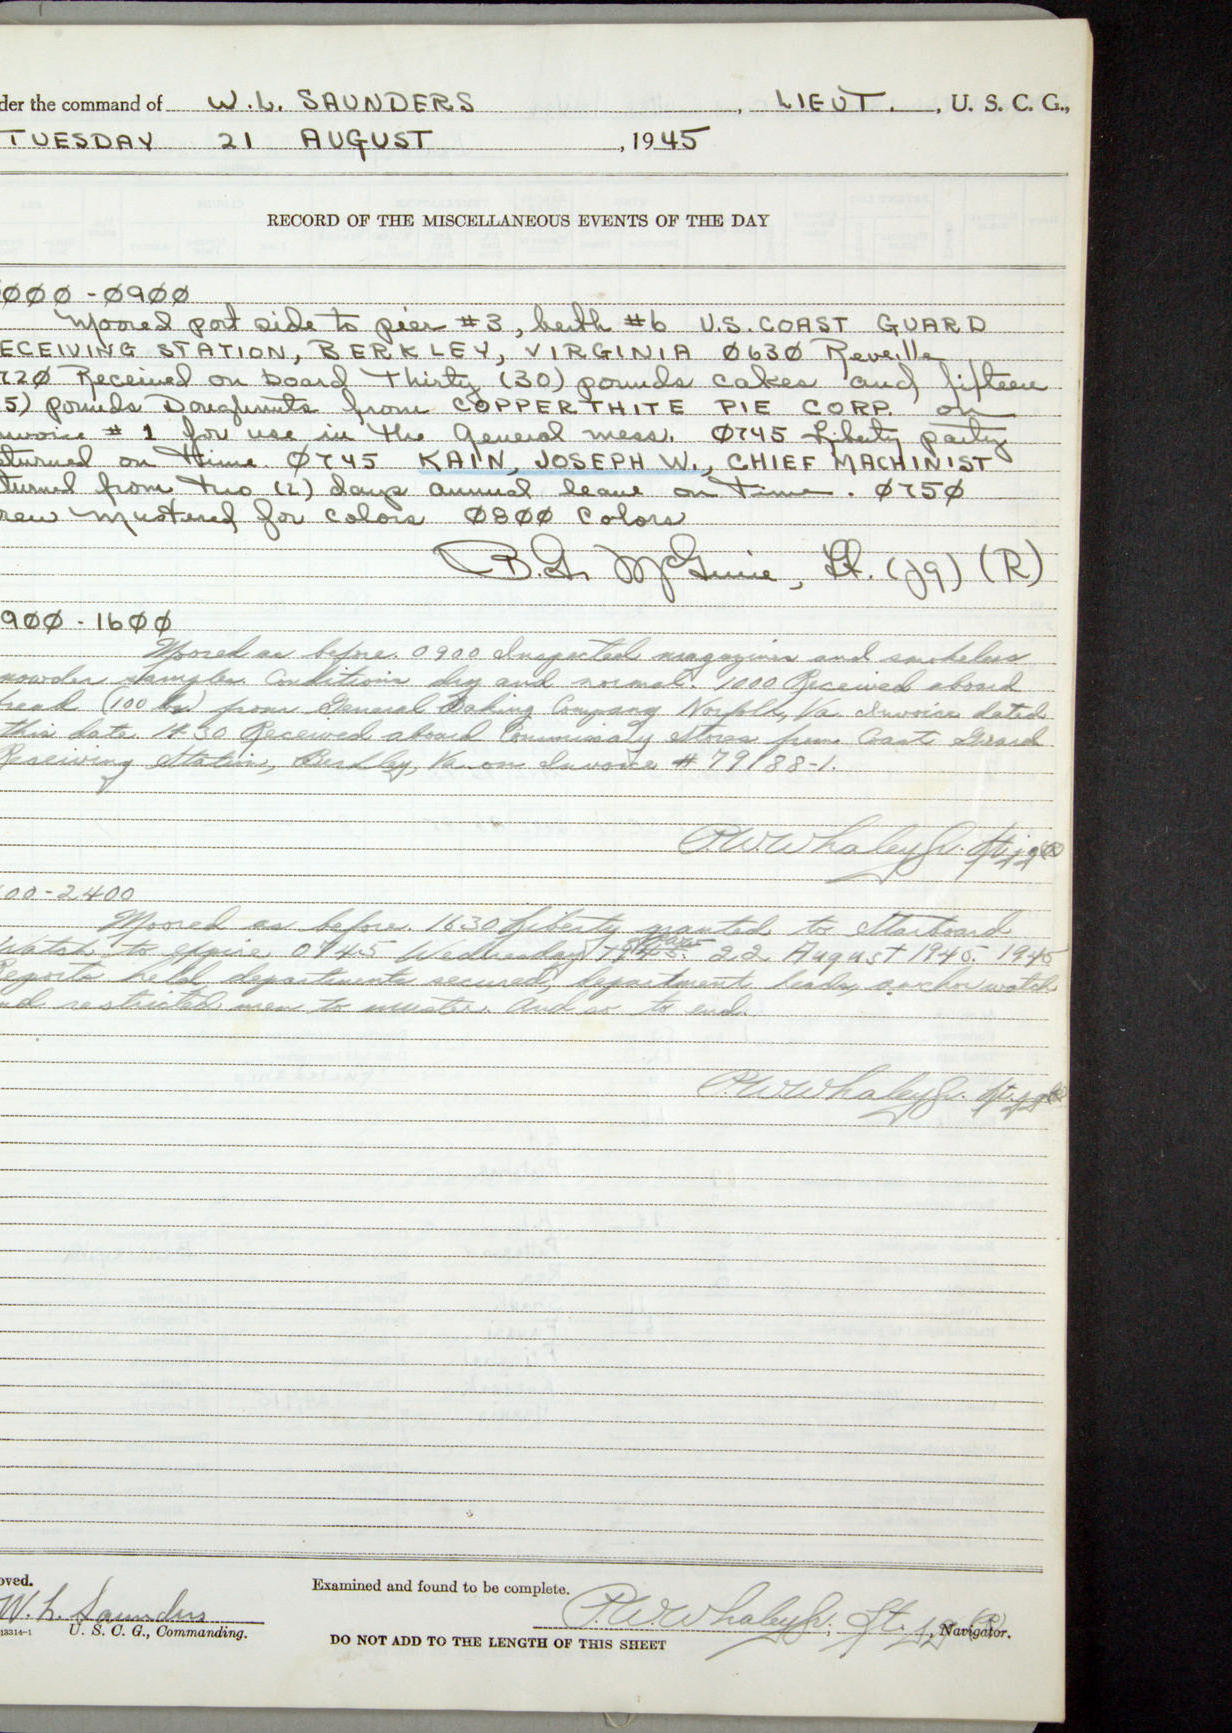 der the command of W. L. SAUNDERS, LIEUT., U. S. C. G.,
TUESDAY 21 AUGUST, 1945
RECORD OF THE MISCELLANEOUS EVENTS OF THE DAY
000 - 0900
Moored port side to pier #3, berth #6 U.S. COAST GUARD
ECEIVING STATION, BERKLEY, VIRGINIA 0630 Reveille
720 Received on board Thirty (30) pounds cakes and fifteen
5) pounds Doughnuts from COPPERTHITE PIE CORP. on
nvoice #1 for use in the General mess. 0745 Liberty party
turned on time 0745 KAIN, JOSEPH W., CHIEF MACHINIST
turned from two (2) days annual leave on time. 0750
rew mustered for colors 0800 Colors
B.G. McGuire, Lt. (jg) (R)
900 - 1600
Moored as before. 0900 Inspected magazines and smokeless
powder samples. Conditions dry and normal. 1000 Received aboard
bread (100 lbs) from General Baking Company Norfolk, Va. Invoice dated
this date. 1430 Received aboard Commissary Stores from Coast Guard
Receiving Station, Berkley, Va. on Invoice # 79188-1.
P.W. Whaley Jr. Lt. jg (R)
600-2400
Moored as before. 1630 Liberty granted to Starboard
Watch to expire 0745 Wednesday, 22 August 1945. 1945
Reports held, departments secured, department heads, anchor watch
nd restricted men to muster. And so to end.
P.W. Whaley Jr. Lt. jg (R)
oved.
Examined and found to be complete.
W. L. Saunders
P.W. Whaley Jr., Lt. jg (R), Navigator.
13314-1 U. S. C. G., Commanding.
DO NOT ADD TO THE LENGTH OF THIS SHEET